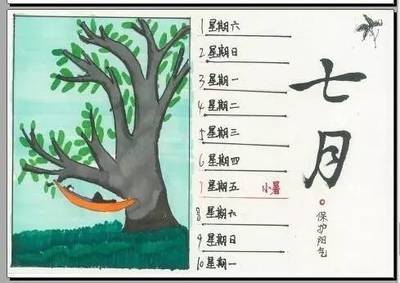 1 星期六
2 星期日
3 星期一
4 星期二
5 星期三
6 星期四
7 星期五 小暑
8 星期六
9 星期日
10 星期一
七月
保护阳气